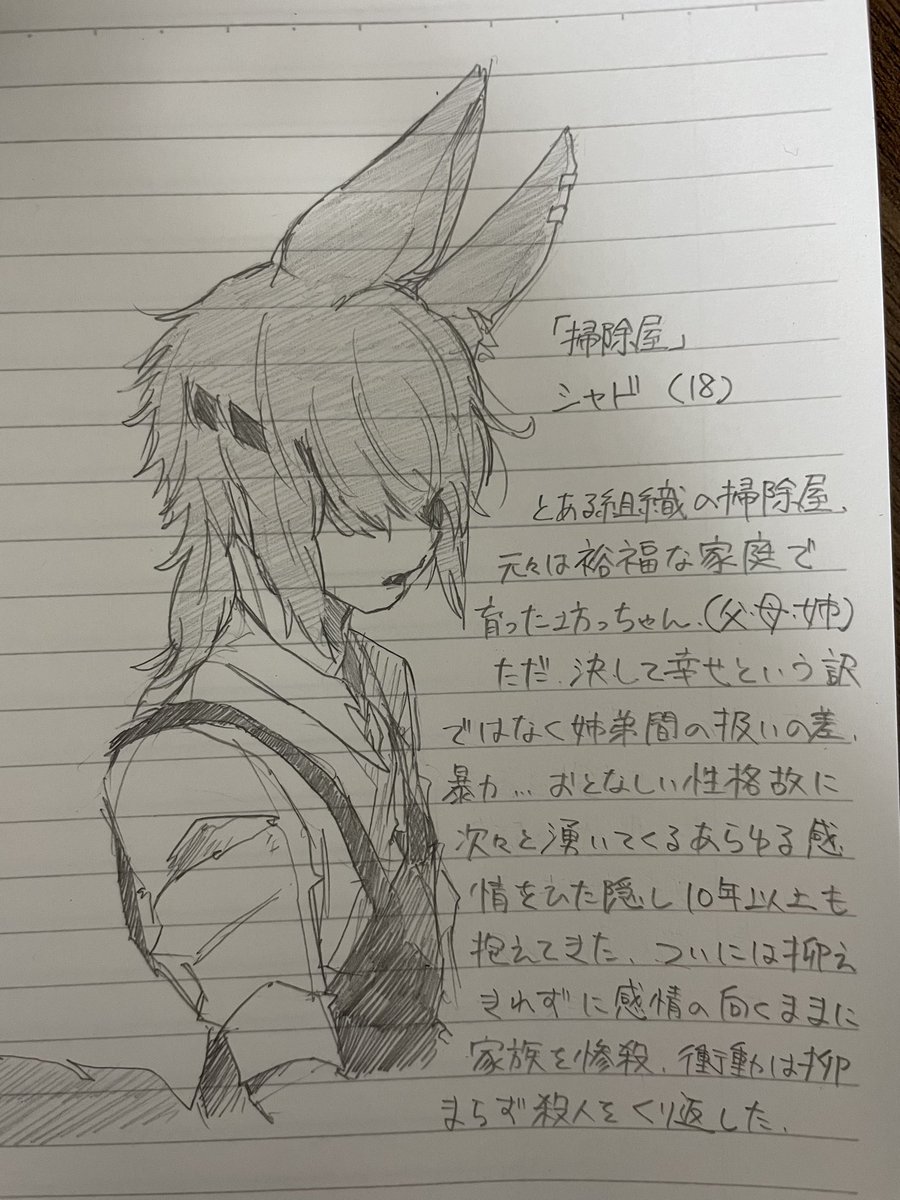 「掃除屋」
シャド (18)
とある組織の掃除屋、
元々は裕福な家庭で
育った坊っちゃん、(父・母・姉)
ただ、決して幸せという訳
ではなく姉弟間の扱いの差、
暴力…おとなしい性格故に
次々と湧いてくるあらゆる感
情をひた隠し10年以上も
抱えてきた、ついには抑え
きれずに感情の向くままに
家族を惨殺、衝動は抑
まらず殺人をくり返した、